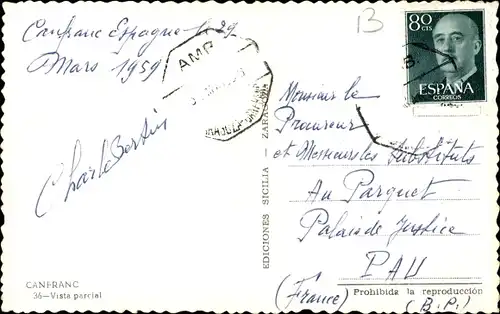 Canfranc Espagne le 29
Mars 1959
Charles Bertin
CANFRANC
36—Vista parcial
EDICIONES SICILIA — ZARAGOZA
AMB
B
80
CTS
ESPAÑA
CORREOS
Monsieur le
Procureur
et Messieurs les Substituts
Au Parquet
Palais de Justice
PAU
(France)
Prohibida la reproducción
(B.P.)